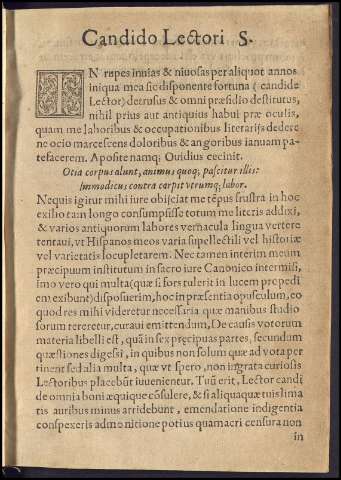 Candido Lectori S.
IN rupes inuias & niuosas per aliquot annos
iniqua mea sic disponente fortuna (candide
Lector) detrusus & omni præsidio destitutus,
nihil prius aut antiquius habui præ oculis,
quam me laboribus & occupationibus literarijs dedere
ne ocio marcescens doloribus & angoribus ianuam pa-
tefacerem. Aposite namq; Ouidius cecinit.
Otia corpus alunt, animus quoq; pascitur illis:
Immodicus contra carpit vtrumq; labor.
Nequis igitur mihi iure obijciat me tẽpus frustra in hoc
exilio tam longo consumpsisse totum me literis addixi,
& varios antiquorum labores vernacula lingua vertere
tentaui, vt Hispanos meos varia supellectili vel historiæ
vel varietatis locupletarem. Nec tamen interim meum
præcipuum institutum in sacro iure Canonico intermisi,
imo vero qui multa (quæ si fors tulerit in lucem prodei
em exibunt) disposuerim, hoc in præsentia opusculum, eo
quod res mihi videretur necessaria quæ manibus studio
forum tereretur, curaui emittendum, De causis votorum
materia libelli est, quã in sex præcipuas partes, secundum
quæstiones digessi, in quibus non solum quæ ad vota per
tinent sed alia multa, quæ vt spero, non ingrata curiosis
Lectoribus placebũt iuuenientur. Tuũ erit, Lector candi
de omnia boni æquique cõsulere, & si aliqua quæ tuis lima
tis auribus minus arridebunt, emendatione indigentia
conspexeris admonitione potius quam acri censura non
in